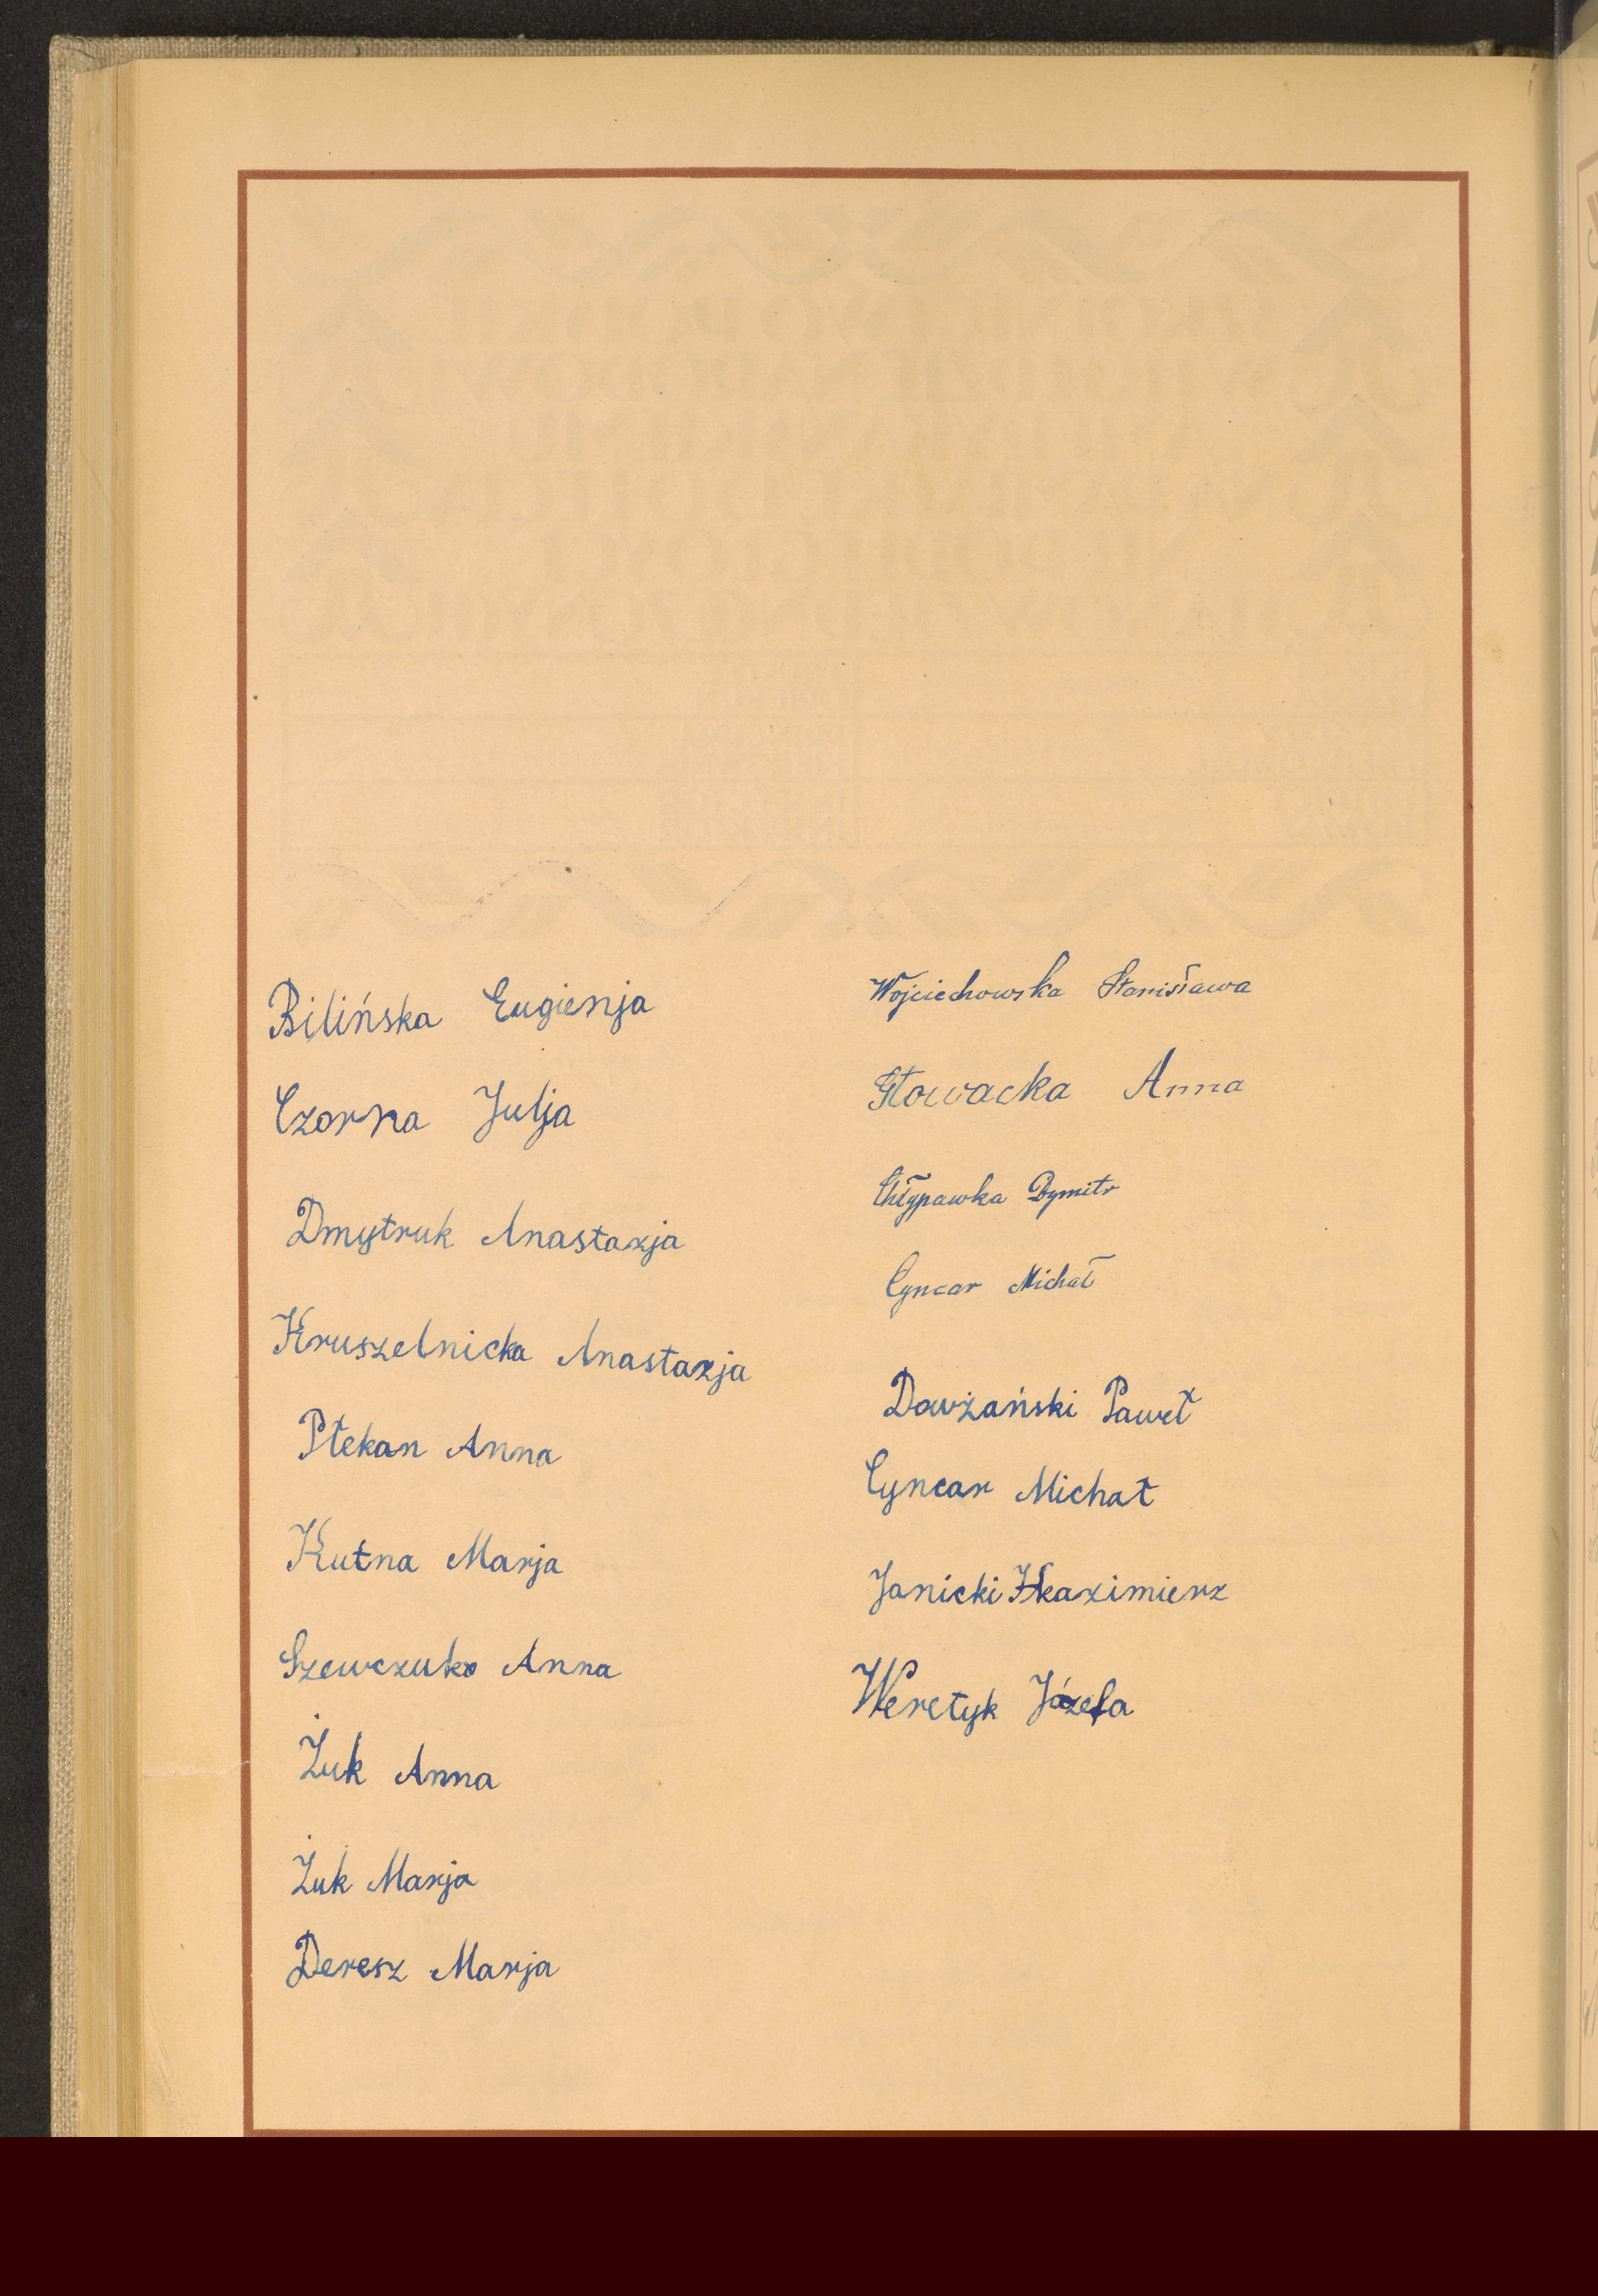 Bilińska Eugienja
Czorna Julja
Dmytruk Anastazja
Kruszelnicka Anastazja
Płekan Anna
Kutna Marja
Szewczuko Anna
Żuk Anna
Żuk Marja
Deresz Marja
Wojciechowska Stanisława
Głowacka Anna
Chłypawka Dymitr
Cyncar Michał
Dowżański Paweł
Cyncar Michał
Janicki Kazimierz
Weretyk Józefa